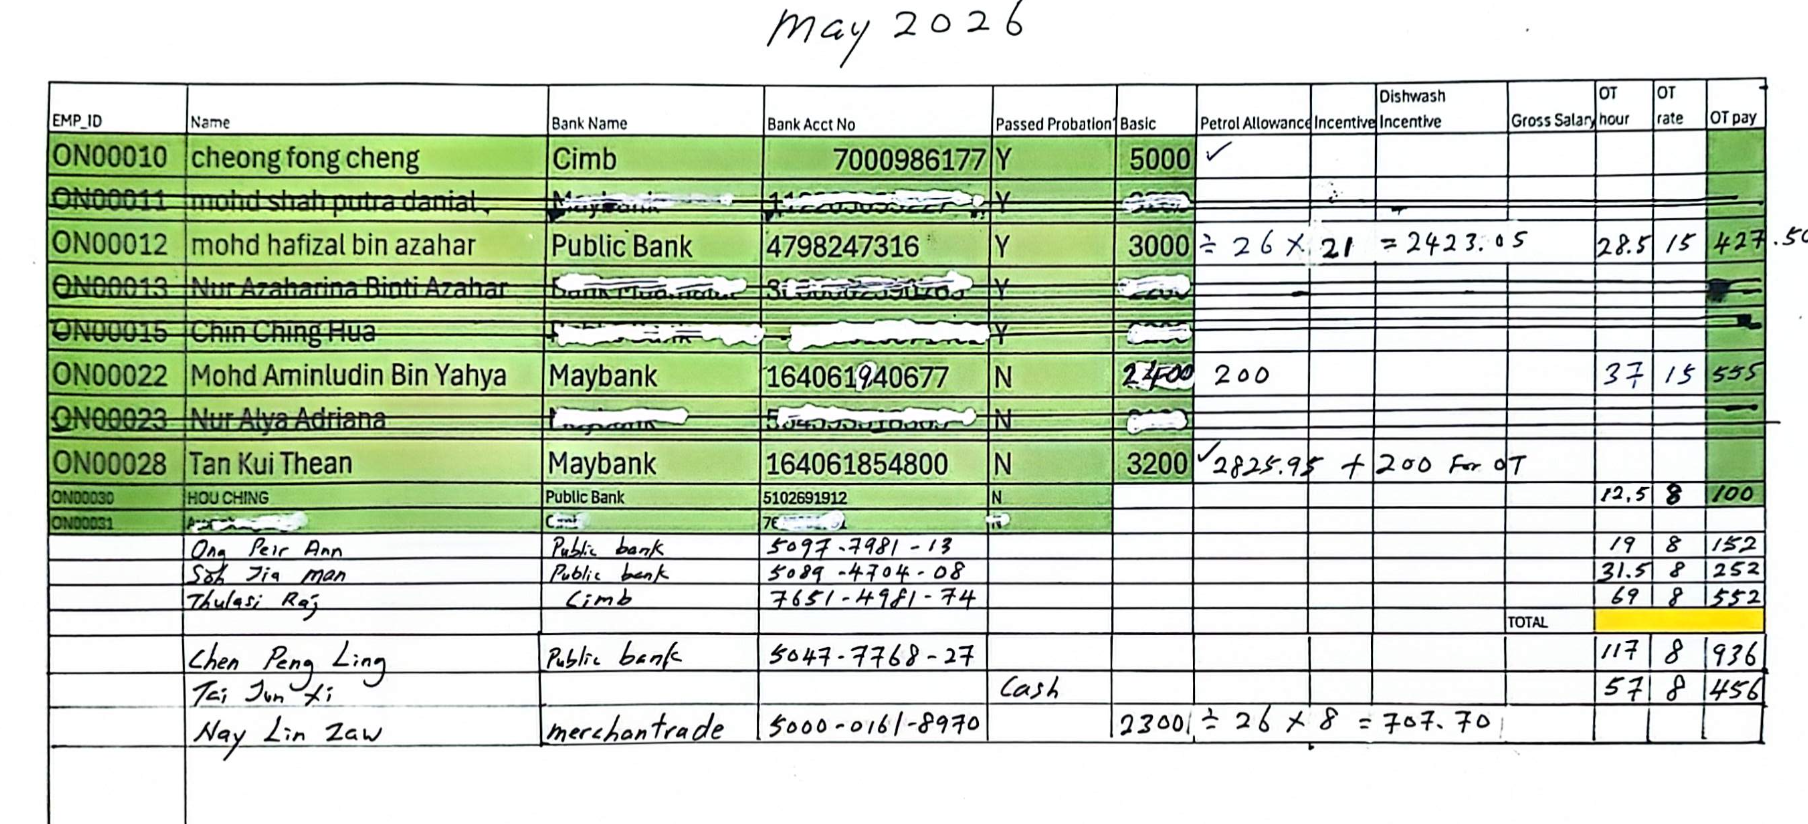 May 2026
EMP_ID Name Bank Name Bank Acct No Passed Probation Basic Petrol Allowance Incentive Dishwash Incentive Gross Salary OT hour OT rate OT pay
ON00010 cheong fong cheng Cimb 7000986177 Y 5000 ✓
ON00011 mohd shah putra danial Maybank Y
ON00012 mohd hafizal bin azahar Public Bank 4798247316 Y 3000 ÷ 26 × 21 = 2423.05 28.5 15 427.50
ON00013 Nur Azaharina Binti Azahar Y
ON00015 Chin Ching Hua Y
ON00022 Mohd Aminludin Bin Yahya Maybank 164061940677 N 2400 200 37 15 555
ON00023 Nur Alya Adriana N
ON00028 Tan Kui Thean Maybank 164061854800 N 3200 ✓ 2825.95 + 200 For OT
ON00030 HOU CHING Public Bank 5102691912 N 12.5 8 100
ON00031
Ong Peir Ann Public bank 5097-7981-13 19 8 152
Soh Jia man Public bank 5089-4704-08 31.5 8 252
Thulasi Raj Cimb 7651-4981-74 69 8 552
TOTAL
Chen Peng Ling Public bank 5047-7768-27 117 8 936
Tai Jun Xi Cash 57 8 456
Nay Lin Zaw merchantrade 5000-0161-8970 2300 ÷ 26 × 8 = 707.70